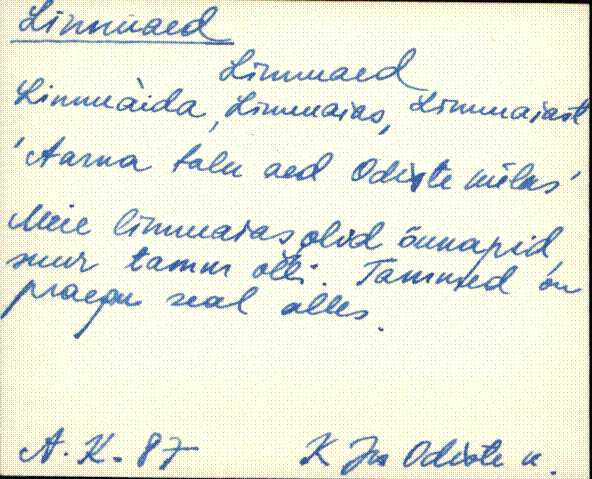 Linnuaed
Linnuaed
Linnuàida, Linnuaias, Linnuaiast
'Aarna talu aed Odiste külas'
Meie linnuaias olid õunapid,
suur tamm olli. Tammed on
praegu seal alles.
A. K. 87 K Odiste k.